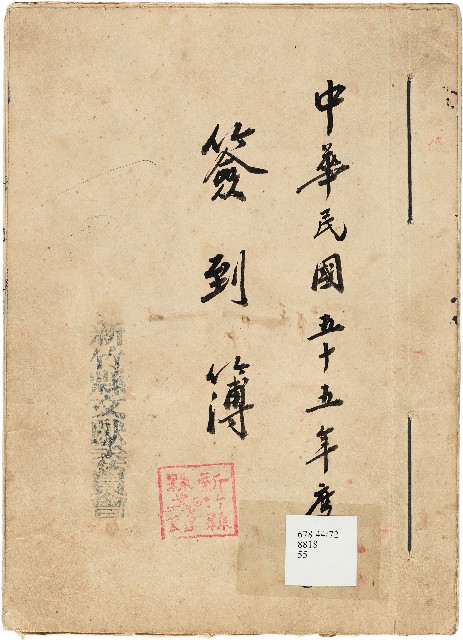 中華民國五十五年度
簽到簿
新竹縣文獻委員會
新竹縣
678.44/72
8818
55